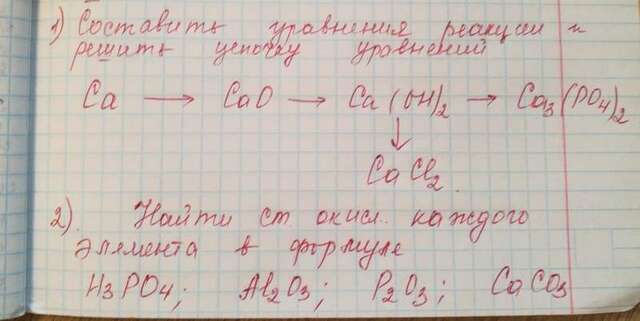 1) Составить уравнения реакции и
решить цепочку уравнений
Ca → CaO → Ca(OH)₂ → Ca₃(PO₄)₂
↓
CaCl₂
2). Найти ст. окисл. каждого
элемента в формуле
H₃PO₄; Al₂O₃; P₂O₃; CaCO₃